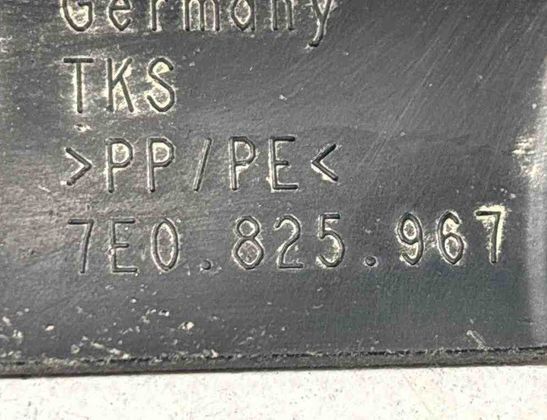 Germany
TKS
>PP/PE<
7E0.825.967